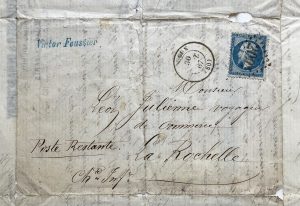 Victor Foussier
Monsieur
Léon Julienne voyageur
de commerce
Poste Restante.
La Rochelle
Ch^te Inf^re